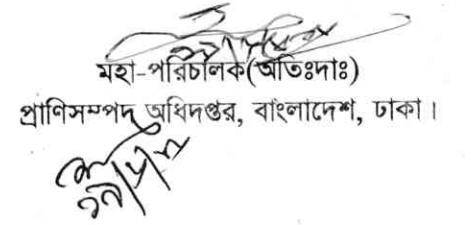 মহা-পরিচালক(অতিঃদাঃ)
প্রাণিসম্পদ অধিদপ্তর, বাংলাদেশ, ঢাকা।